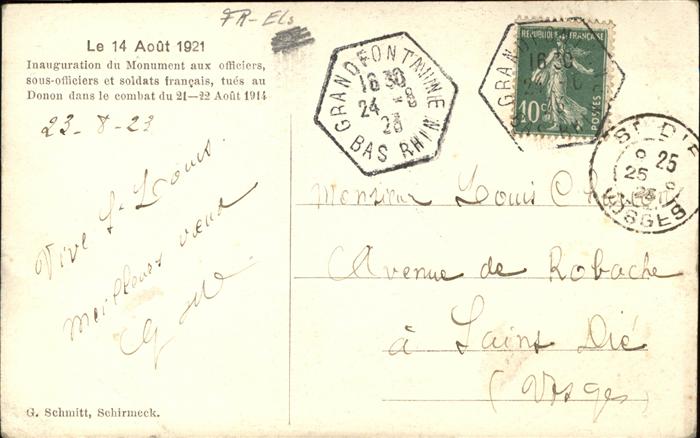 FR-Els
Le 14 Août 1921
Inauguration du Monument aux officiers,
sous-officiers et soldats français, tués au
Donon dans le combat du 21—22 Août 1914
23-8-23
Vive St Louis.
Meilleurs vœux
G W.
G. Schmitt, Schirmeck.
GRANDFONTAINE
16 30
24 -8
23
BAS RHIN
REPUBLIQUE FRANÇAISE
10c
POSTES
16 30
ST DIE
25
VOSGES
Monsieur Louis
Avenue de Robache
à Saint Dié
(Vosges)